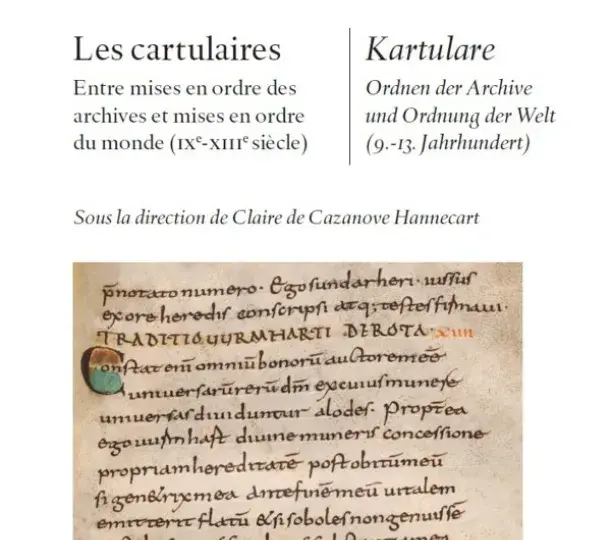 Les cartulaires
Entre mises en ordre des
archives et mises en ordre
du monde (IXᵉ-XIIIᵉ siècle)
Kartulare
Ordnen der Archive
und Ordnung der Welt
(9.-13. Jahrhundert)
Sous la direction de Claire de Cazanove Hannecart
p̄notato numero· Ego sundarheri· iussus
ex ore heredis conscripsi atq; testes firmaui·
TRADITIO UURMHARTI DE ROTA· XIIII
Constat enī omniū bonorū auctorem eē
uniuersarū rerū dm̄ ex cuius munere
uniuersas diuiduntur alodes· Propt̄ea
ego uurmhart diuine muneris concessione
propriam hereditatē post obitū meū
si genetrix mea ante finē meū uitalem
emitterit flatū & si soboles non genuissē